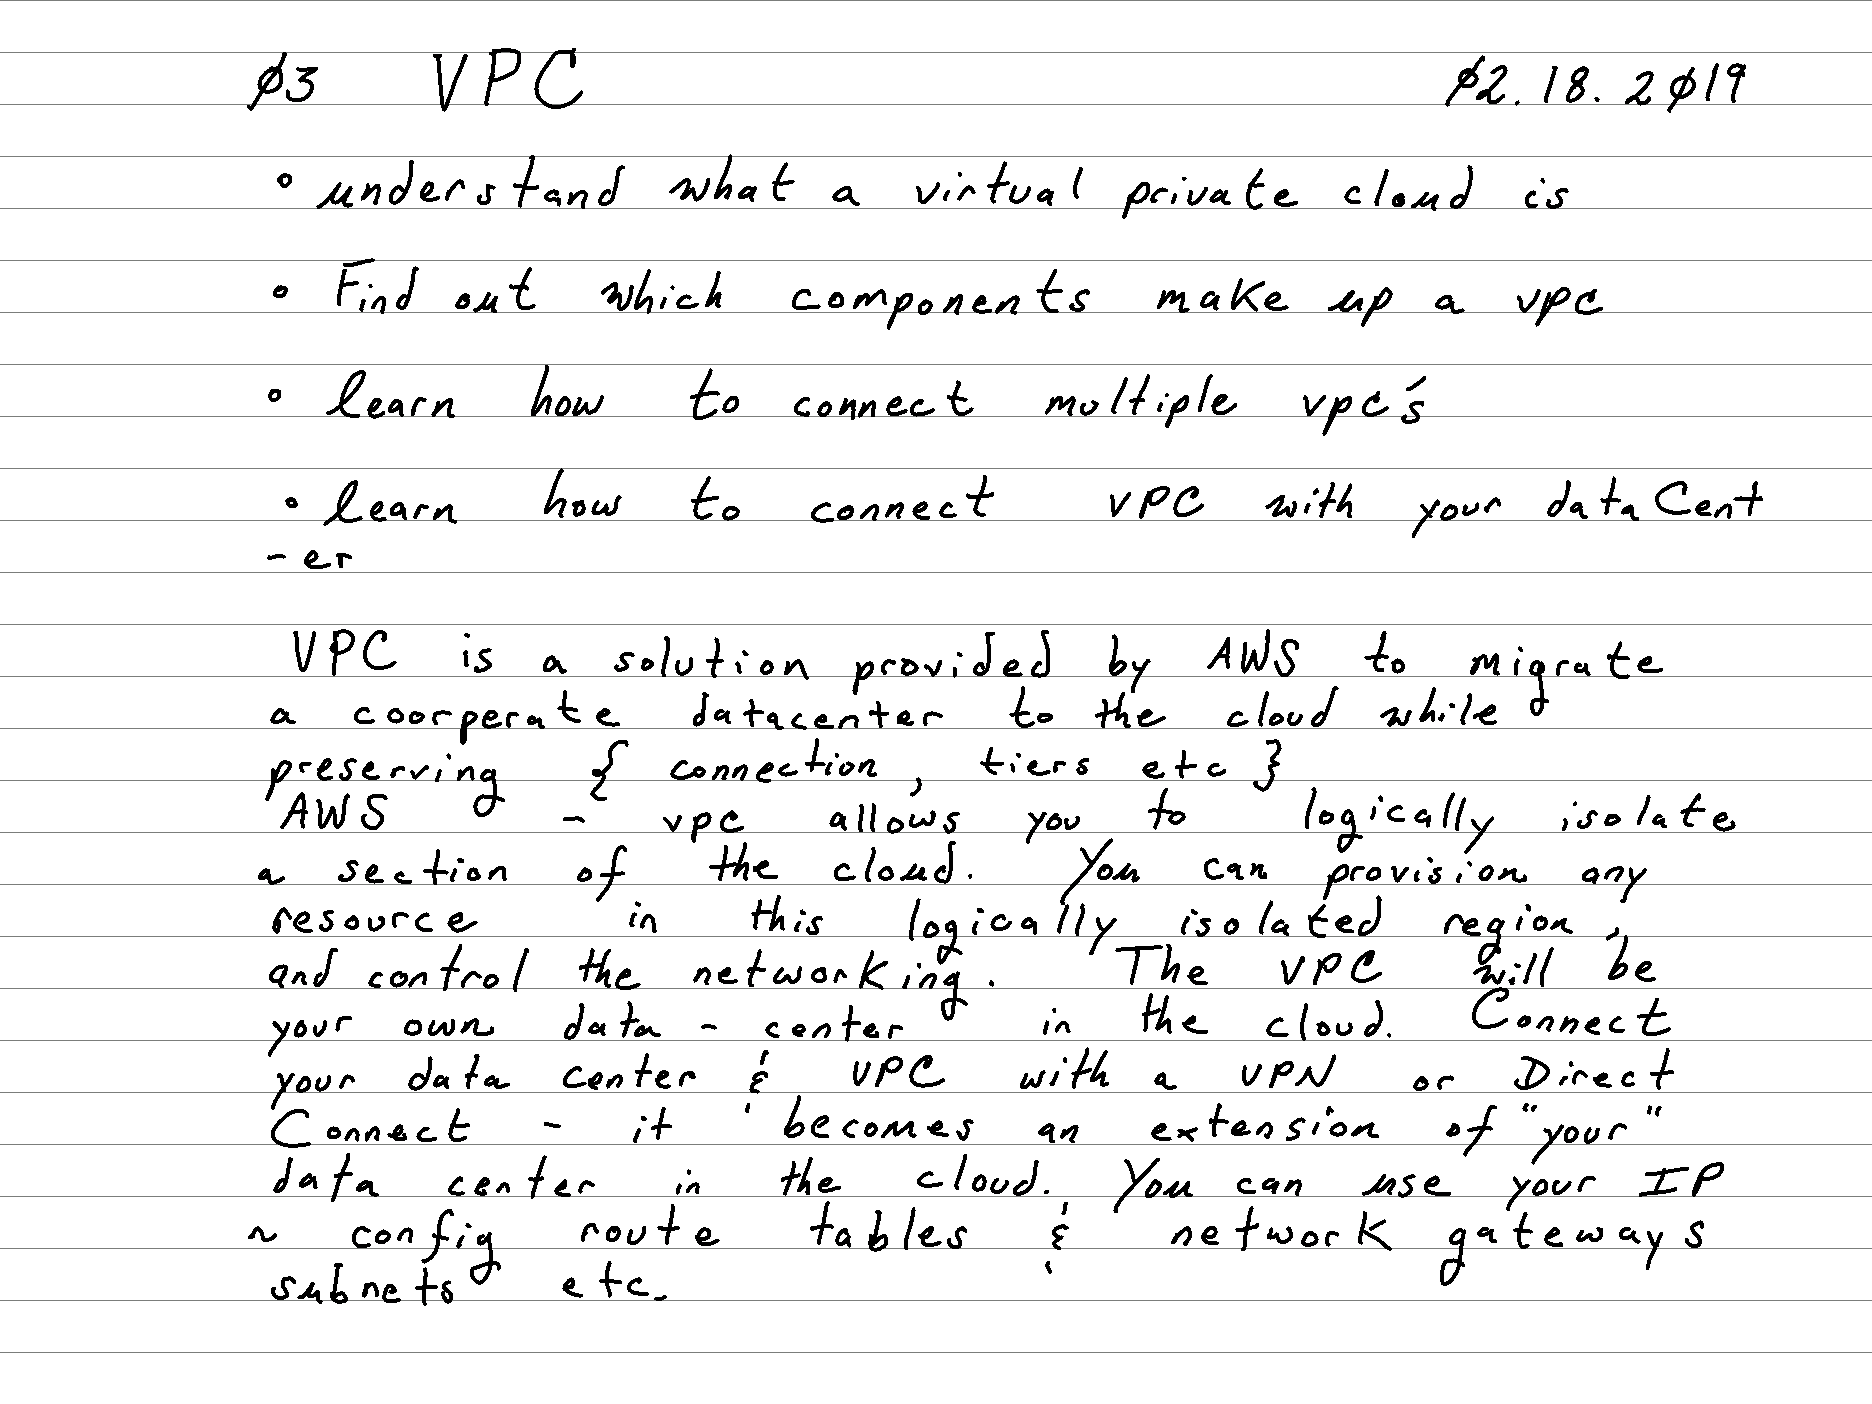 03 VPC 02.18.2019
◦ understand what a virtual private cloud is
◦ Find out which components make up a vpc
◦ learn how to connect multiple vpc's
◦ learn how to connect VPC with your dataCent
-er
VPC is a solution provided by AWS to migrate
a coorperate datacenter to the cloud while
preserving { connection, tiers etc }
AWS - vpc allows you to logically isolate
a section of the cloud. You can provision any
resource in this logically isolated region,
and control the networking. The VPC will be
your own data - center in the cloud. Connect
your data center & VPC with a VPN or Direct
Connect - it becomes an extension of "your"
data center in the cloud. You can use your IP
~ config route tables & network gateways
subnets etc.